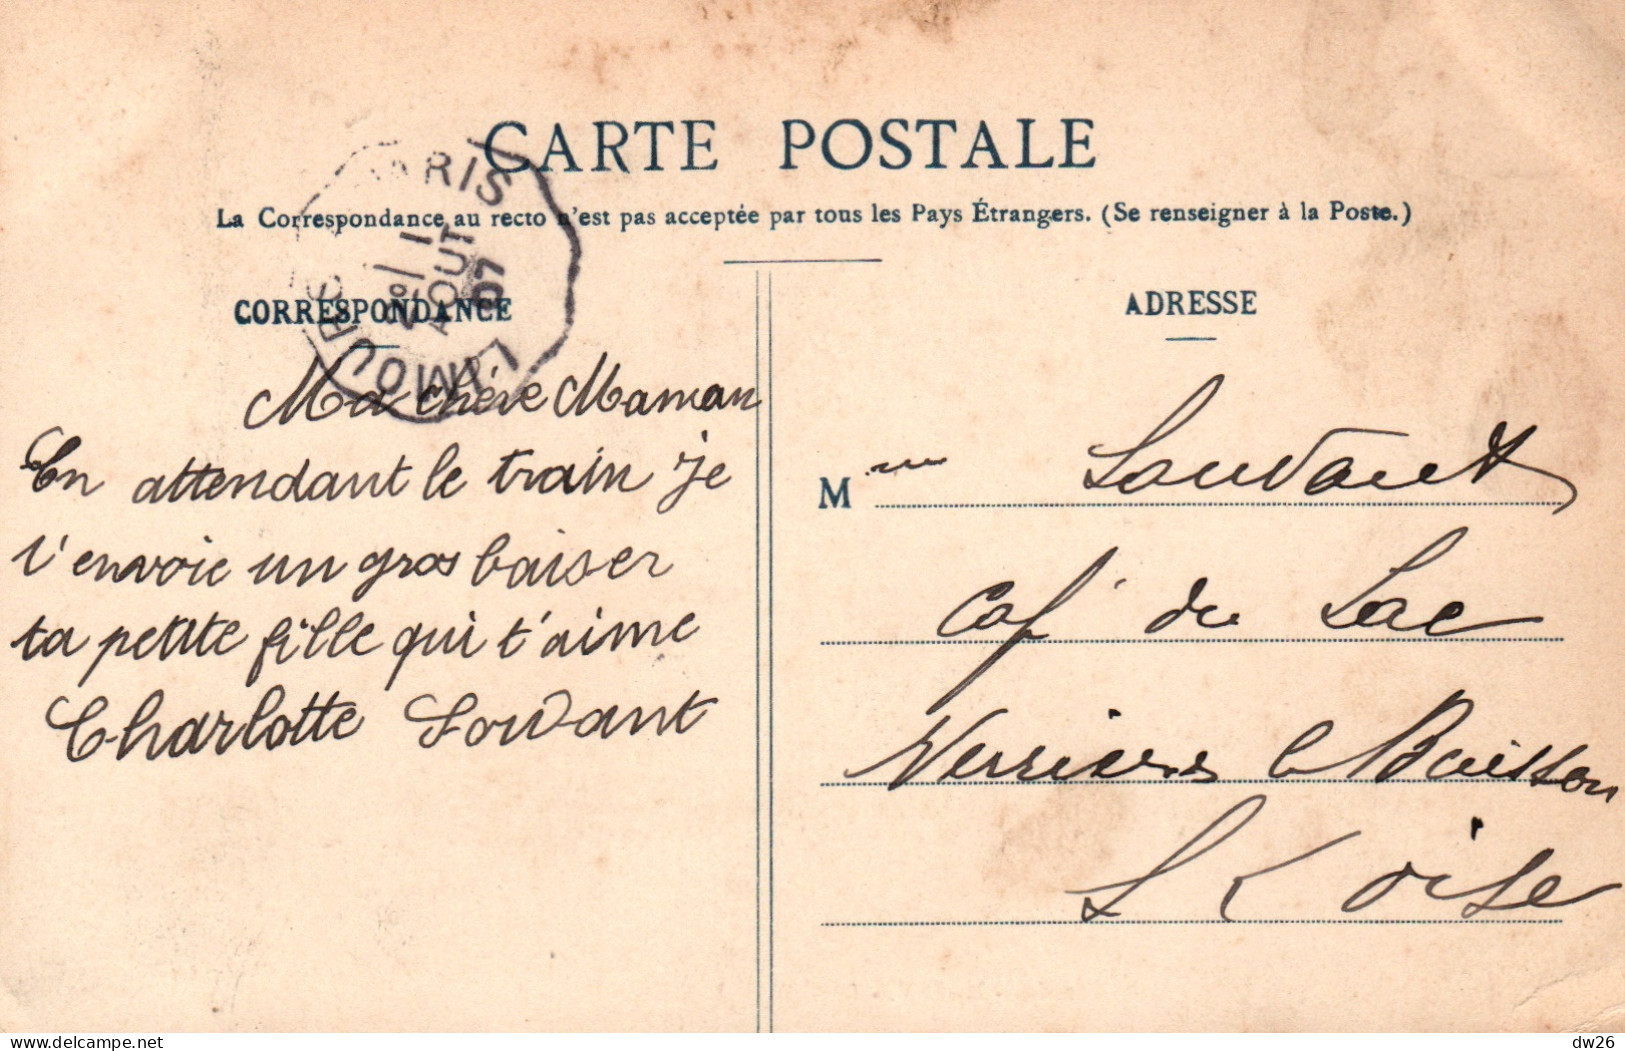 CARTE POSTALE
La Correspondance au recto n'est pas acceptée par tous les Pays Étrangers. (Se renseigner à la Poste.)
PARIS
LIMOURS
AOUT
07
CORRESPONDANCE
Ma chère Maman
En attendant le train je
t'envoie un gros baiser
ta petite fille qui t'aime
Charlotte Louvant
ADRESSE
Mme Louvant
Caf du Lac
Verrieres le Buisson
S & Oise
delcampe.net
dw26